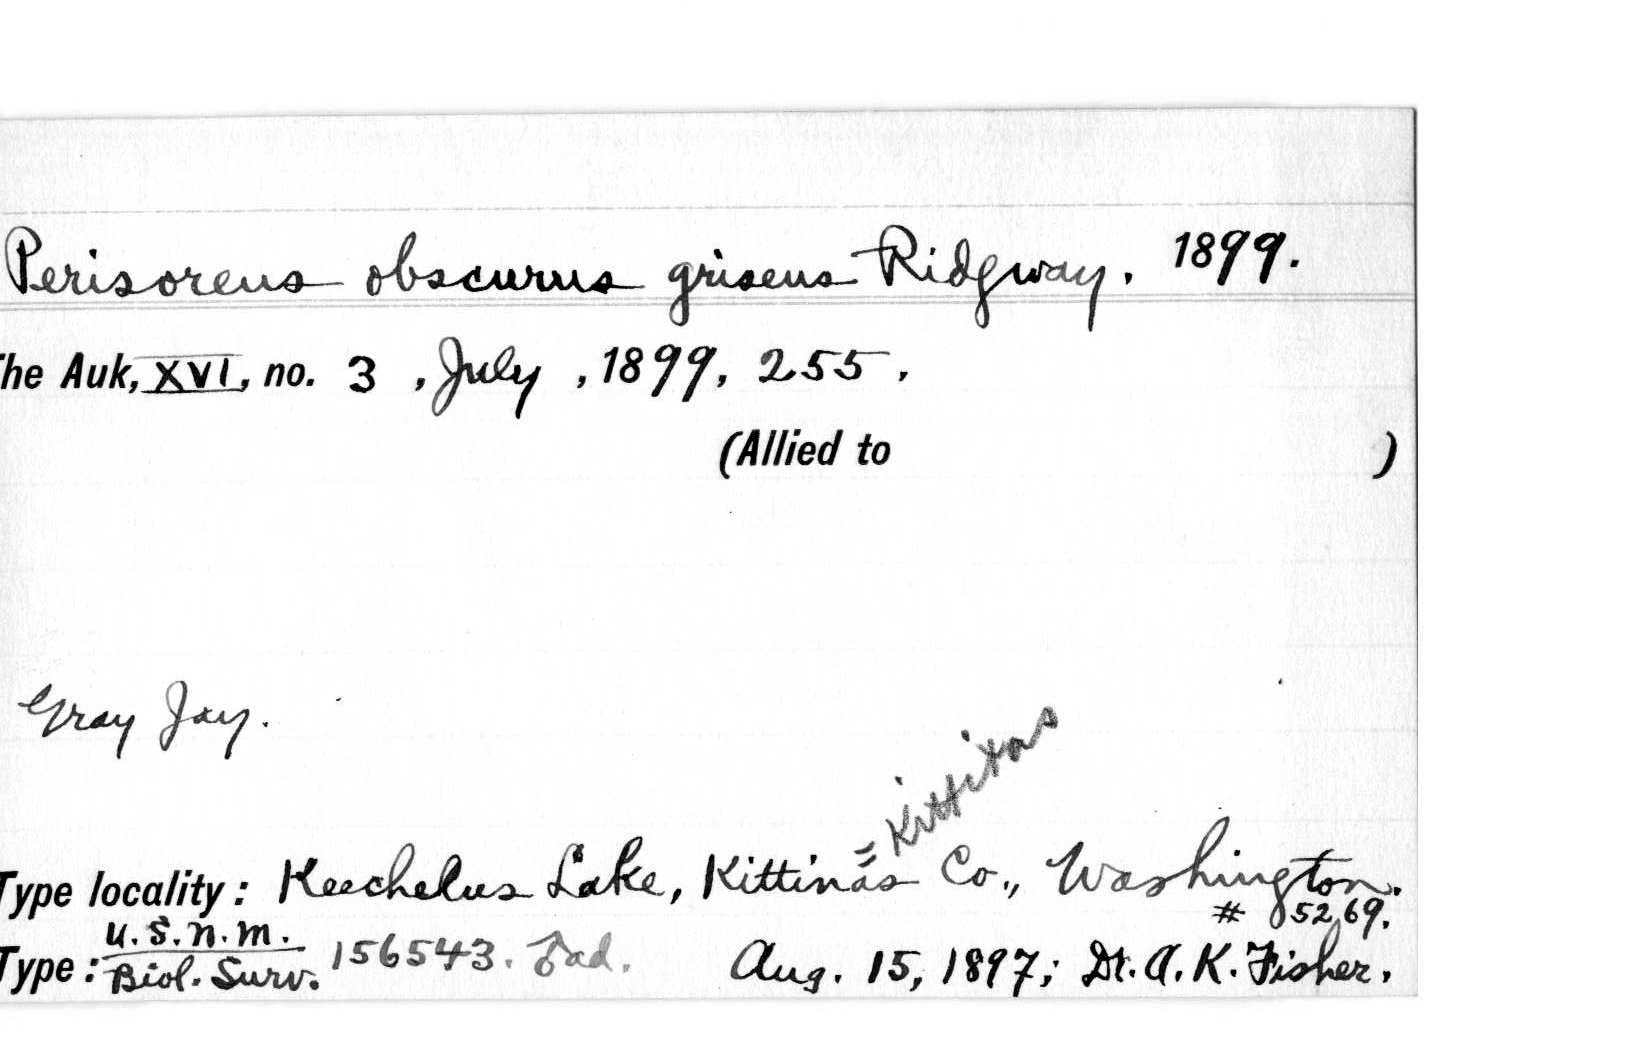 Perisoreus obscurus griseus Ridgway. 1899.
The Auk, XVI, no. 3, July, 1899, 255.
(Allied to )
Gray Jay.
= Kittitas
Type locality: Keechelus Lake, Kittinas Co., Washington.
# 5269.
U.S.N.M.
Type: Biol. Surv. 156543. ♂ad. Aug. 15, 1897; Dr. A. K. Fisher.